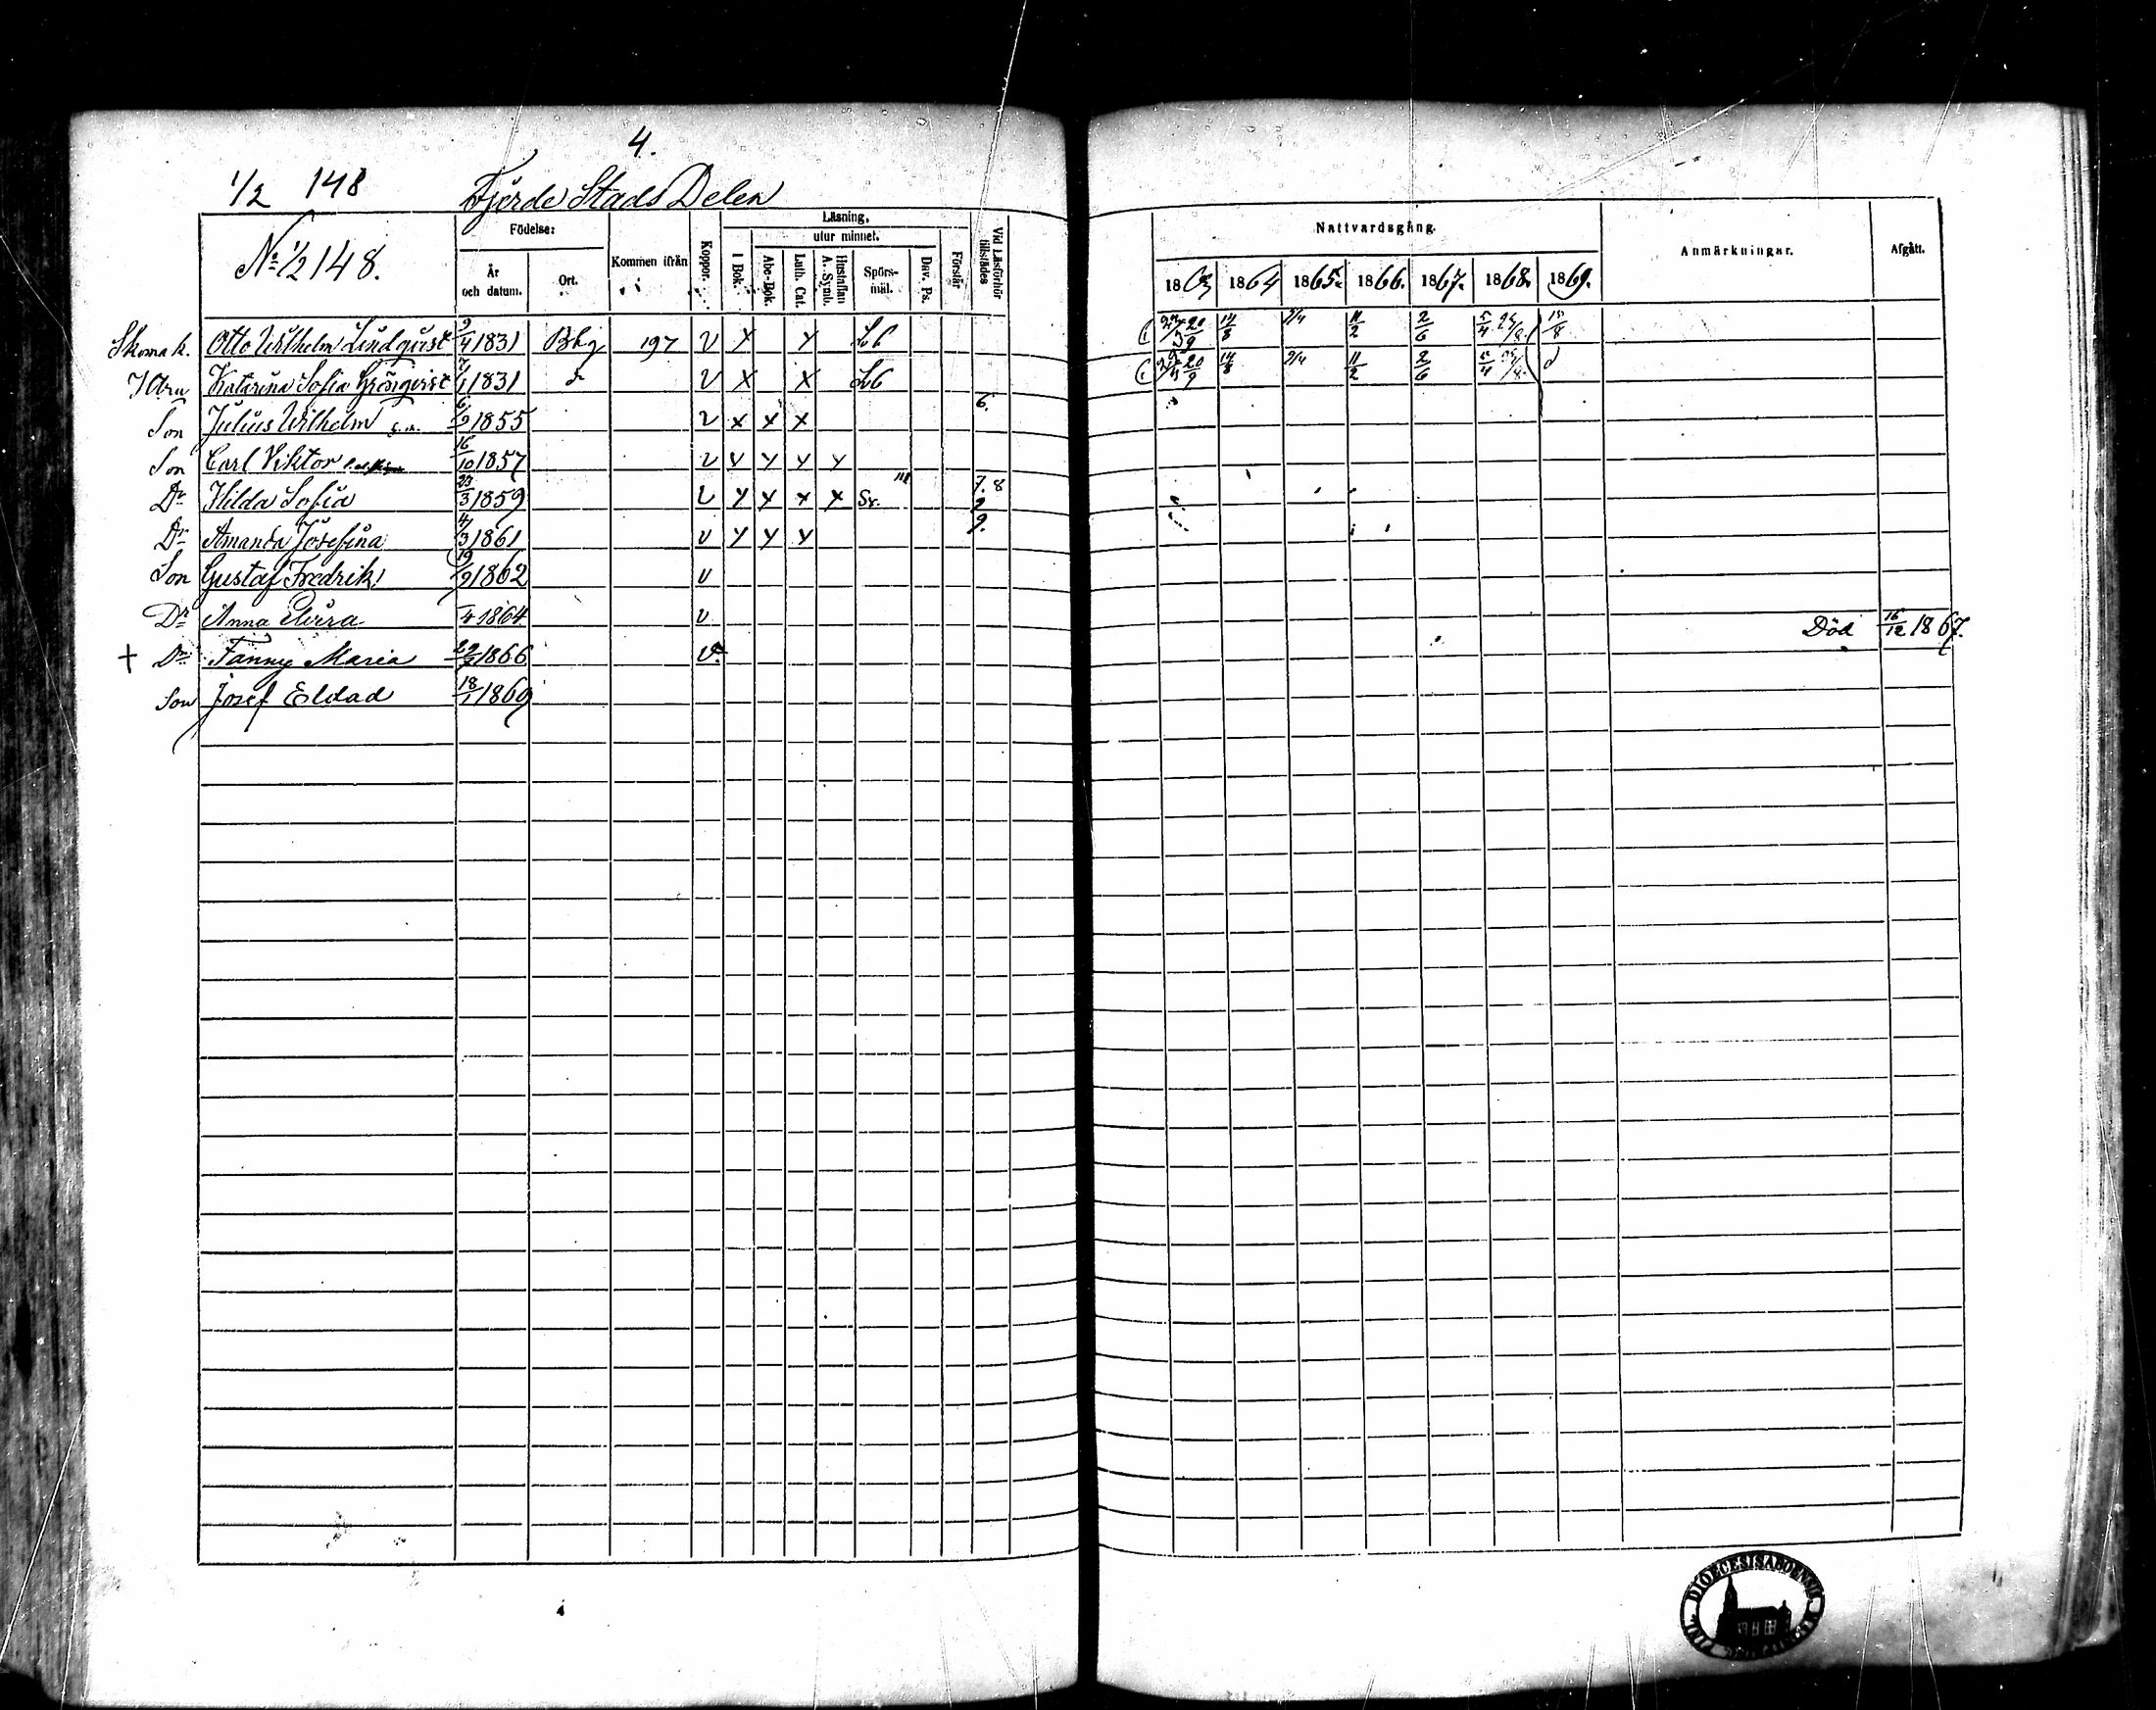 4.
1/2 148 Fjerde Stads Delen
No 1/2 148.
Födelse:
År och datum.
Ort.
Kommen ifrån
Koppor.
Läsning.
I Bok.
utur minnet.
Abc-Bok.
Luth. Cat.
Hustaflan A. Symb.
Spörsmål.
Dav. Ps.
Förstår
Vid Läsförhör tillstädes
Nattvardsgång.
1863 1864 1865. 1866. 1867. 1868. 1869.
Anmärkningar.
Afgått.
Skomak. Otto Wilhelm Lindqvist 9/4 1831 Bbg 197 V X X 14/8 2/4 11/2 2/6 5/4
Katarina Sofia Grönqvist 7/1 1831 V X X 14/8 2/4 11/2 2/6 5/4
Son Julius Wilhelm 6/9 1855 V X X X 6.
Son Carl Viktor 16/10 1857 V Y Y Y Y
Dr Hilda Sofia 23/3 1859 V Y X X X 7.8 9
Dr Amanda Josefina 4/3 1861 V Y Y Y 9.
Son Gustaf Fredrik 19/9 1862 V
Dr Anna Elvira /4 1864 V
† Dr Fanny Maria 1866 V. Död 16/12 1867.
Son Josef Eldad 18/1 1869
4
DIOECESIS ABOENSIS